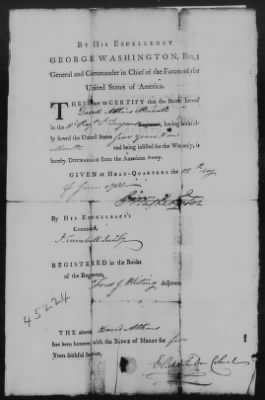 BY HIS EXCELLENCY
GEORGE WASHINGTON, Esq;
General and Commander in Chief of the Forces of the
United States of America.
THESE are to CERTIFY that the Bearer hereof
David Atkins
in the Regiment, having faithfully
served the United States five years &
Month and being inlisted for the War only, is
hereby DISCHARGED from the American Army.
GIVEN at HEAD-QUARTERS the day
of June 1783
G Washington
BY HIS EXCELLENCY'S
Command,
J Trumbull
REGISTERED in the Books
of the Regiment,
Adjutant,
45224
THE above David Atkins
has been honored with the BADGE of MERIT for five
Years faithful Service.
Colonel